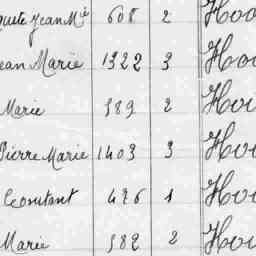 Jean Mie 608 2 Hoo
Jean Marie 1322 3 Hoo
Marie 389 2 Hoi
Pierre Marie 1403 3 Hoi
Constant 476 1 Hoi
Marie 382 2 Hoi